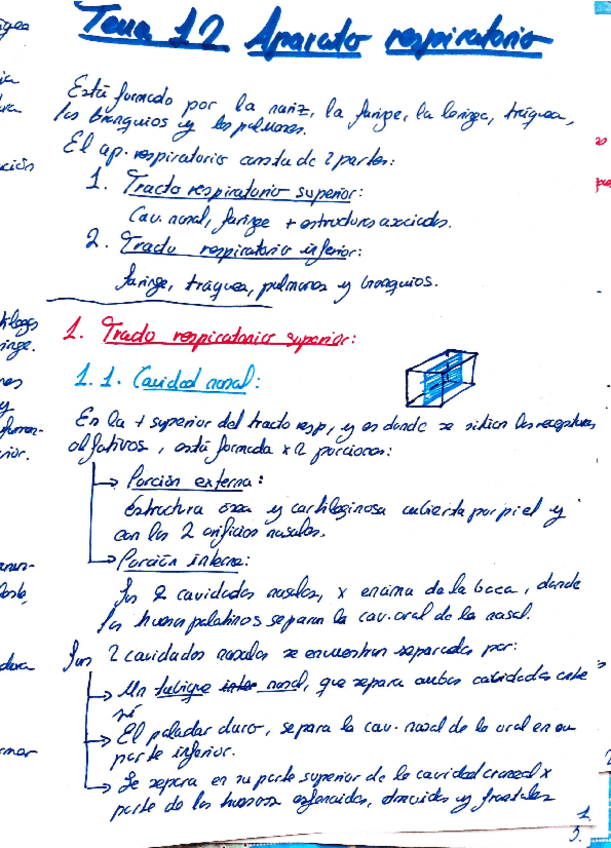 Tema 12 Aparato respiratorio
Está formado por la nariz, la faringe, la laringe, tráquea,
los bronquios y los pulmones.
El ap. respiratorio consta de 2 partes:
1. Tracto respiratorio superior:
Cav. nasal, faringe + estructuras asociadas.
2. Tracto respiratorio inferior:
laringe, tráquea, pulmones y bronquios.
1. Tracto respiratorio superior:
1.1. Cavidad nasal:
Es la + superior del tracto resp, y es donde se sitúan los receptores
olfativos, está formada x 2 porciones:
→ Porción externa:
Estructura ósea y cartilaginosa cubierta por piel y
con los 2 orificios nasales.
→ Porción interna:
Las 2 cavidades nasales, x encima de la boca, donde
los huesos palatinos separan la cav. oral de la nasal.
Las 2 cavidades nasales se encuentran separadas por:
→ Un tabique nasal, que separa ambas cavidades entre
sí
→ El paladar duro, separa la cav. nasal de la oral en su
parte inferior.
→ Se separa en su parte superior de la cavidad craneal x
parte de los huesos esfenoides, etmoides y frontales